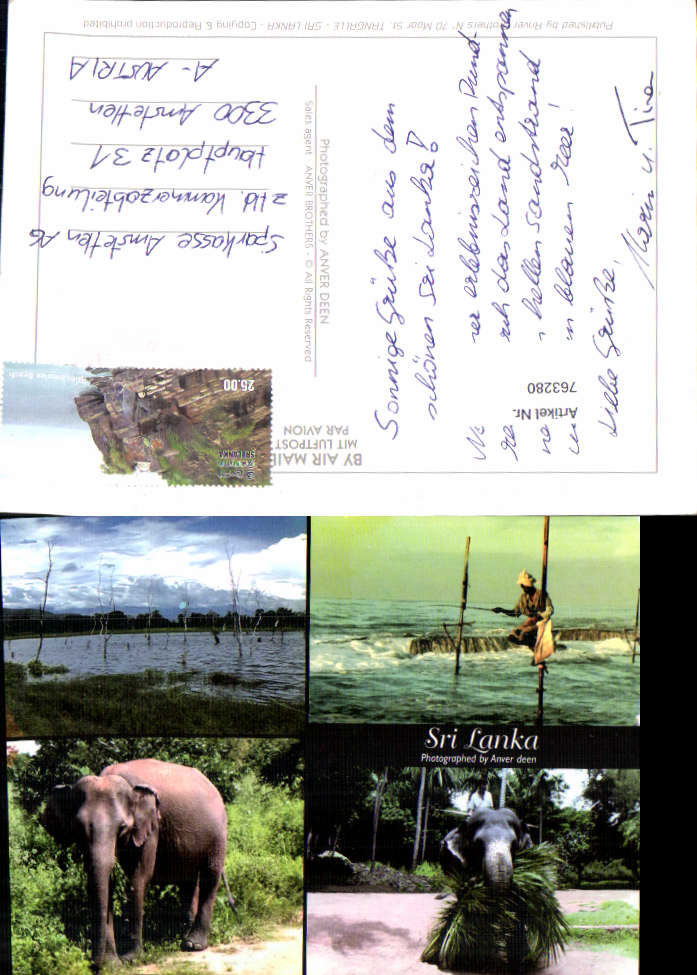 Published by Anver Brothers N° 70 Moor St. TANGALLE - SRI LANKA - Copying & Reproduction prohibited
Sonnige Grüße aus dem
schönen Sri Lanka!
er erlebnisreichen Rund-
das Land entspannen
hellen Sandstrand
blauen Meer!
Liebe Grüße,
Martin u. Tina
Artikel Nr. 763280
Photographed by ANVER DEEN
Sales agent : ANVER BROTHERS - © All Rights Reserved
BY AIR MAIL
MIT LUFTPOST
PAR AVION
25.00
SRI LANKA
Sparkasse Amstetten AG
z Hd. Kammerzabteilung
Hauptplatz 31
3300 Amstetten
A - AUSTRIA
Sri Lanka
Photographed by Anver deen